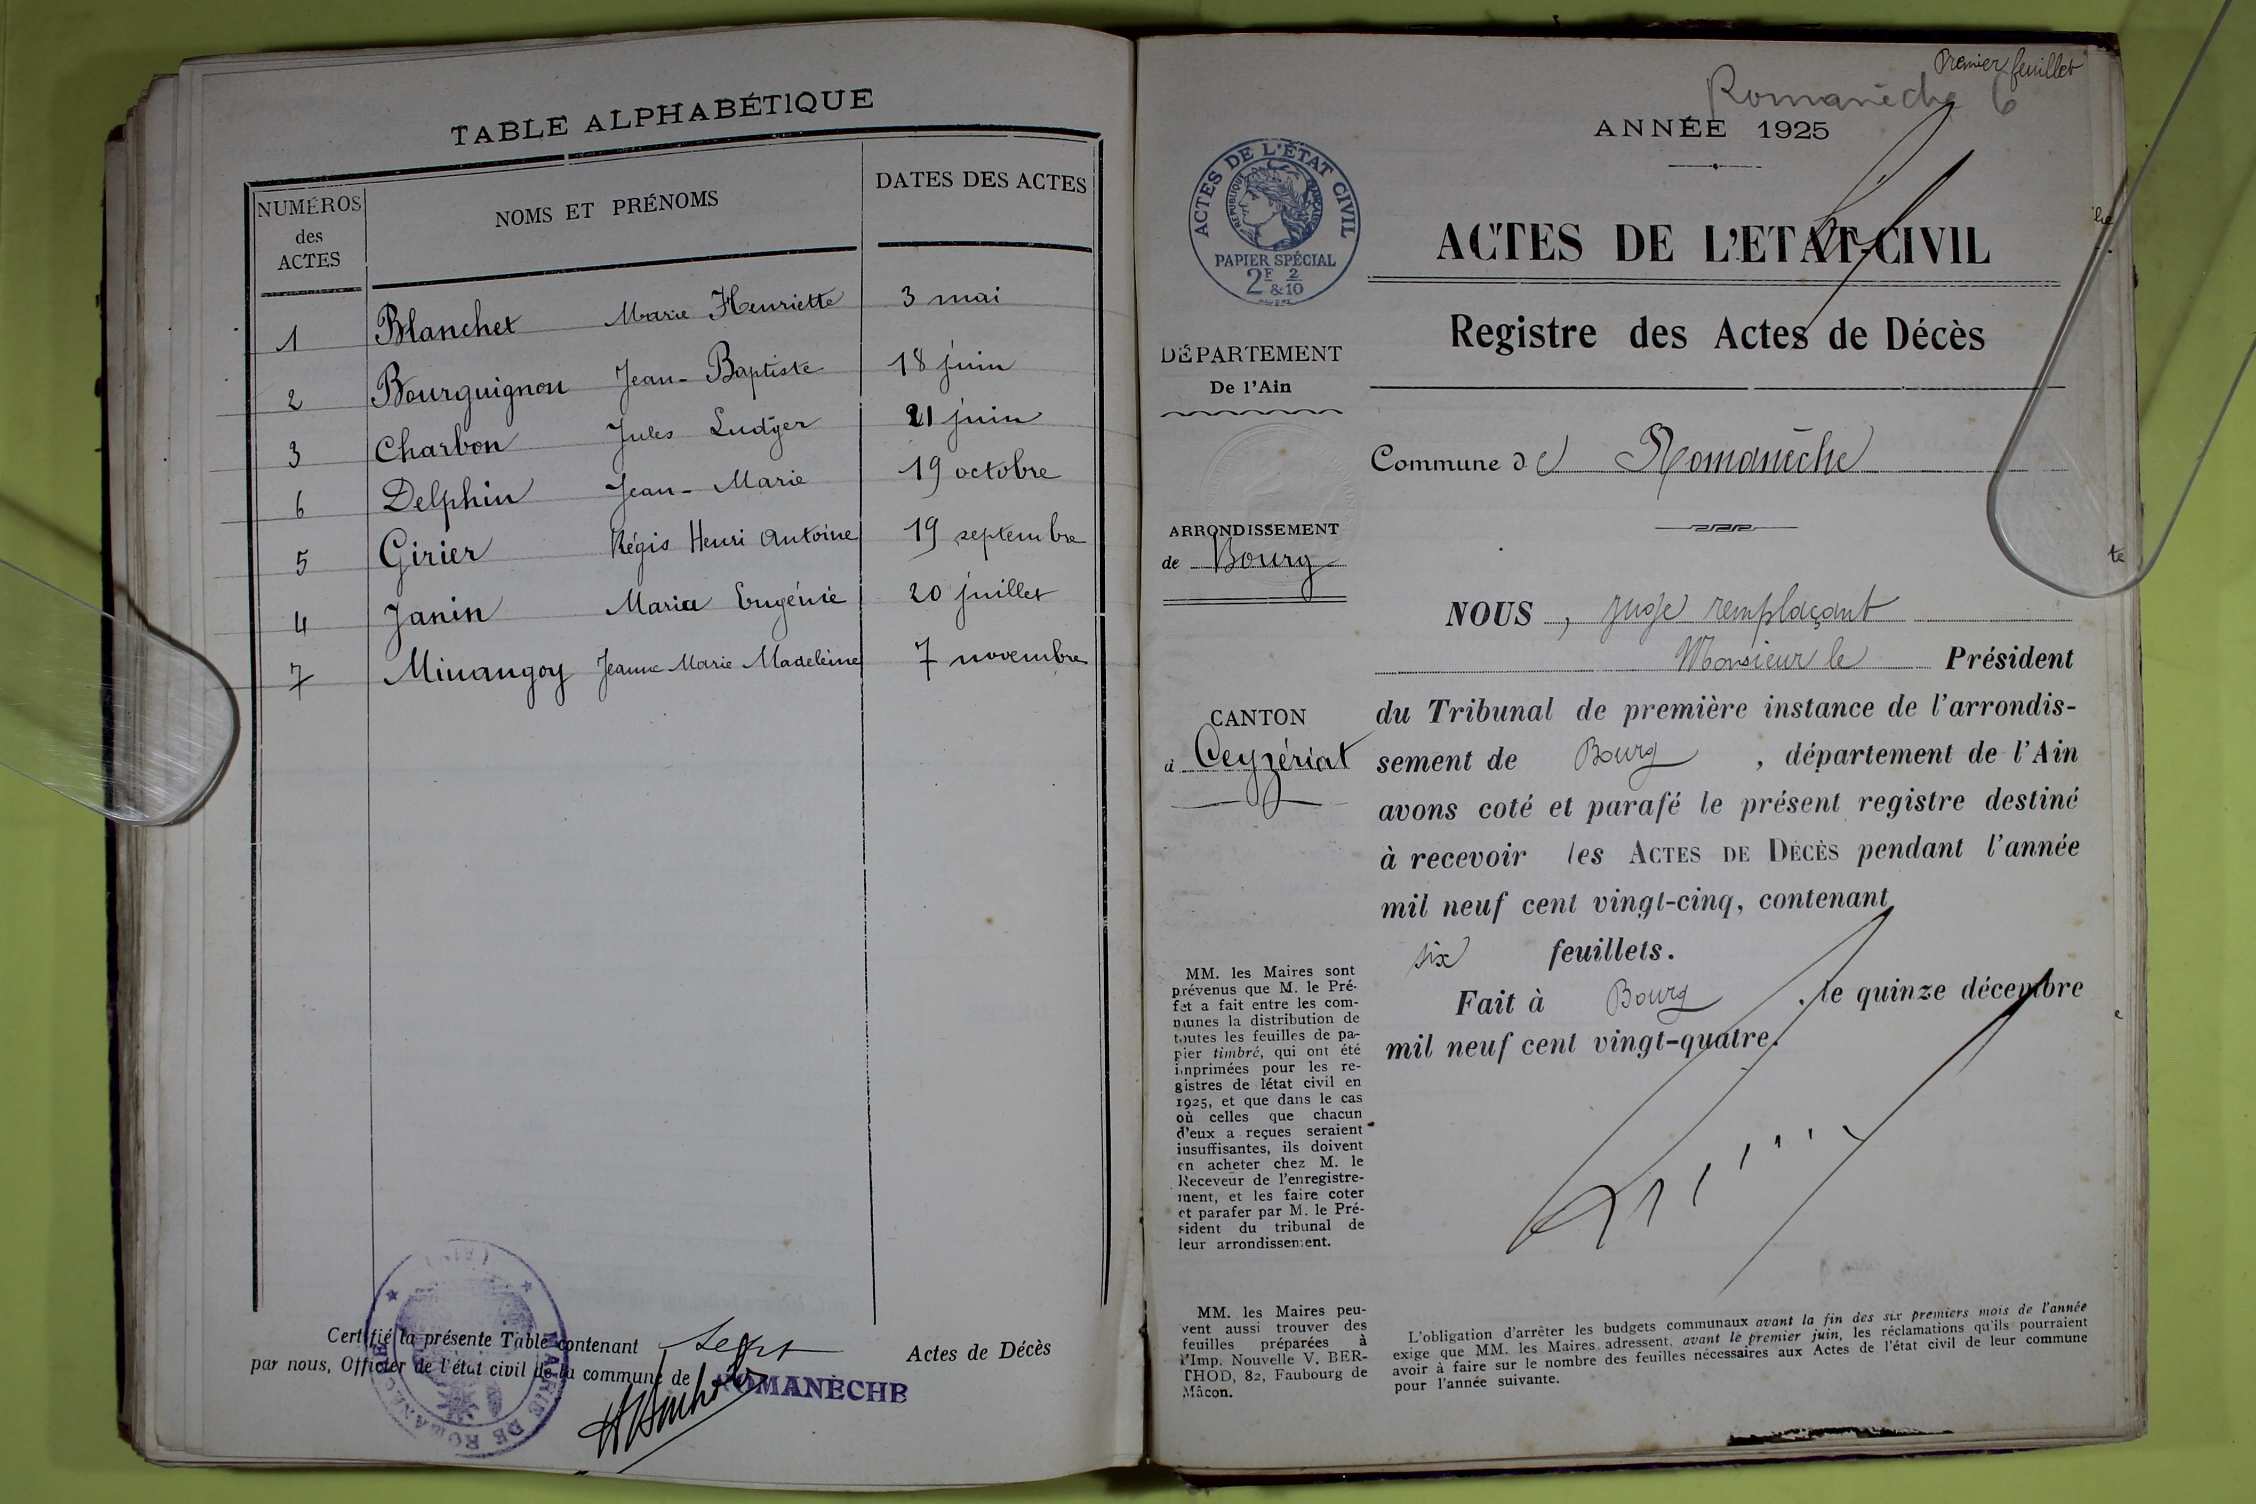 TABLE ALPHABÉTIQUE
NUMÉROS
des
ACTES
NOMS ET PRÉNOMS
DATES DES ACTES
1 Blanchet Marie Henriette 3 mai
2 Bourguignon Jean-Baptiste 18 juin
3 Charbon Jules Ludger 21 juin
6 Delphin Jean-Marie 19 octobre
5 Girier Régis Henri Antoine 19 septembre
4 Janin Maria Eugénie 20 juillet
7 Minangoy Jeanne Marie Madeleine 7 novembre
Certifié la présente Table contenant sept Actes de Décès
par nous, Officier de l'état civil de la commune de ROMANÈCHE
MAIRIE DE ROMANÈCHE
(AIN)
Premier feuillet
Romanèche 6
ANNÉE 1925
ACTES DE L'ÉTAT CIVIL
RÉPUBLIQUE FRANÇAISE
PAPIER SPÉCIAL
2F & 2/10
ACTES DE L'ETAT-CIVIL
Registre des Actes de Décès
DÉPARTEMENT
De l'Ain
Commune de Romanèche
ARRONDISSEMENT
de Bourg
CANTON
d Ceyzériat
NOUS, juge remplaçant
Monsieur le Président
du Tribunal de première instance de l'arrondis-
sement de Bourg, département de l'Ain
avons coté et parafé le présent registre destiné
à recevoir les ACTES DE DÉCÈS pendant l'année
mil neuf cent vingt-cinq, contenant
six feuillets.
Fait à Bourg, le quinze décembre
mil neuf cent vingt-quatre.
MM. les Maires sont
prévenus que M. le Pré-
fet a fait entre les com-
munes la distribution de
toutes les feuilles de pa-
pier timbré, qui ont été
imprimées pour les re-
gistres de létat civil en
1925, et que dans le cas
où celles que chacun
d'eux a reçues seraient
insuffisantes, ils doivent
en acheter chez M. le
Receveur de l'enregistre-
ment, et les faire coter
et parafer par M. le Pré-
sident du tribunal de
leur arrondissement.
MM. les Maires peu-
vent aussi trouver des
feuilles préparées à
l'Imp. Nouvelle V. BER-
THOD, 82, Faubourg de
Mâcon.
L'obligation d'arrêter les budgets communaux avant la fin des six premiers mois de l'année
exige que MM. les Maires adressent, avant le premier juin, les réclamations qu'ils pourraient
avoir à faire sur le nombre des feuilles nécessaires aux Actes de l'état civil de leur commune
pour l'année suivante.